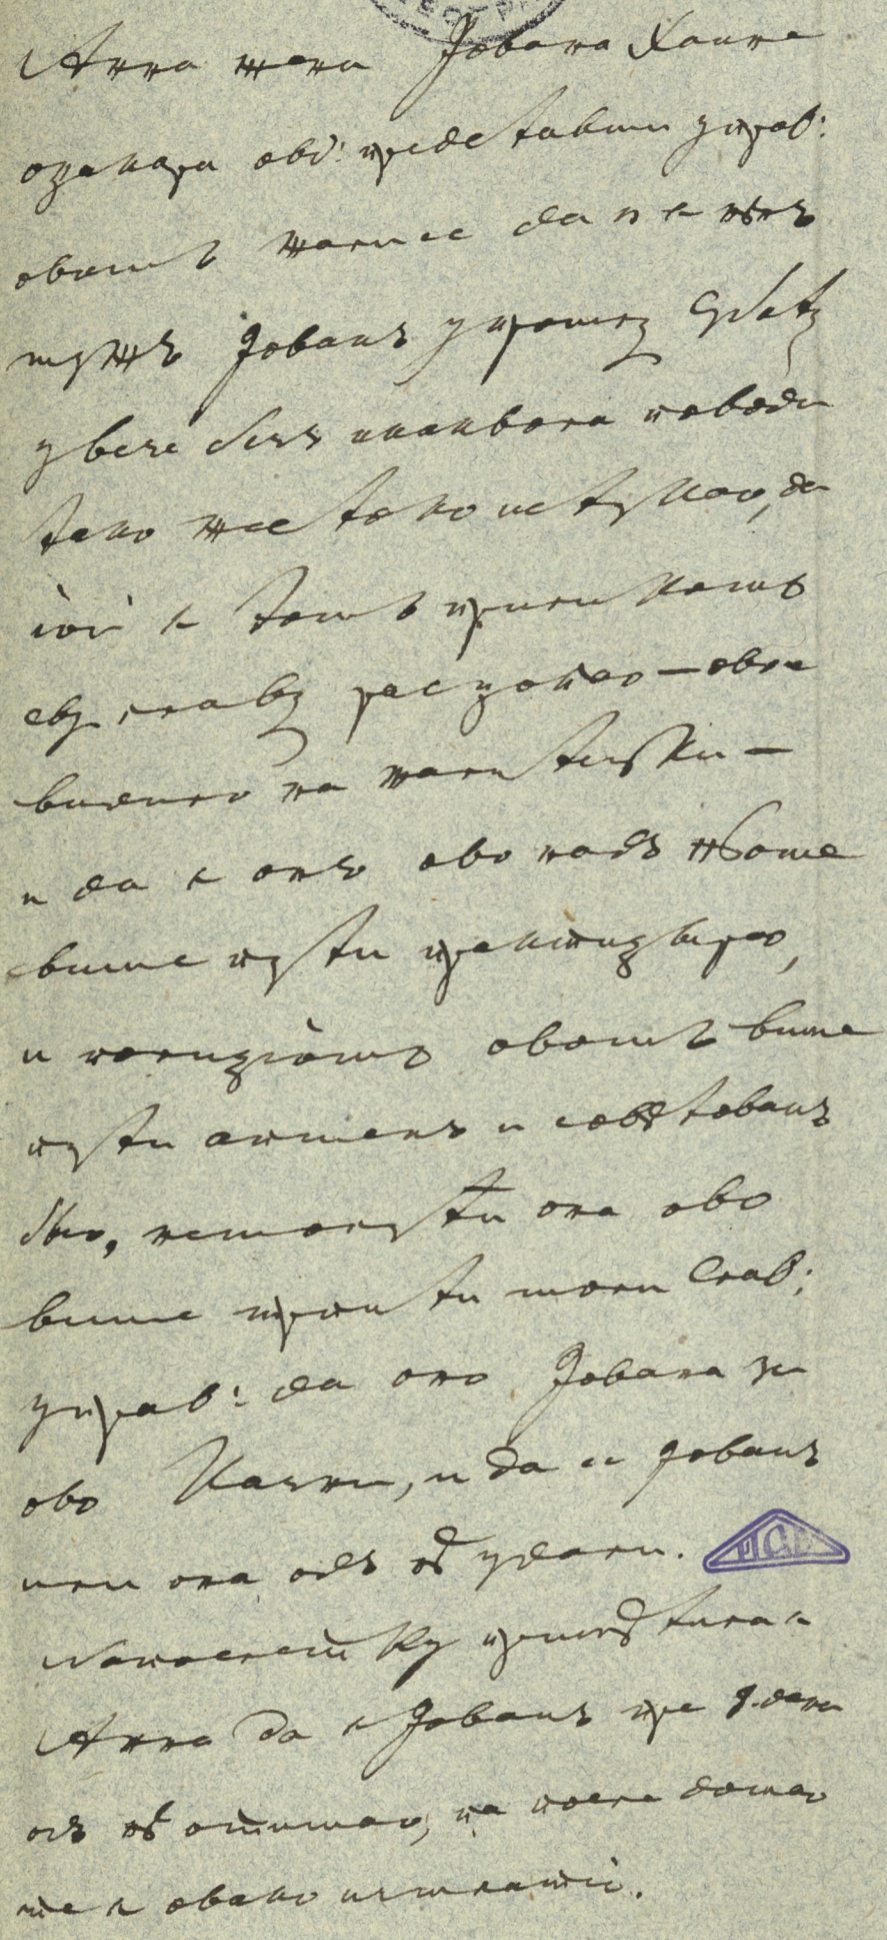 Анна жена Јована Хаине
оџачара овд: представши управ:
овомъ жали се да н є нѣнъ
мужъ Јованъ у прошлу Среду
у вече безъ икаквога повода
тако жестоко истукао, да
іой є томъ приликомъ
сву главу
видити на жалителки —
и да є онъ ово надъ ньоме
више пута
и полиціомъ овомъ више
пута опоменъ и совѣтованъ
быо, немогући она ово
више трпити моли Слав:
управ: да она Јована за
ово Казни, и да и Јованъ
или она одъ нѣ удали.
Напослетку примѣтила є
Анна да є Јованъ пре 9. дана
одъ нѣ отишао, па после дошао
те є овако измлатіо.